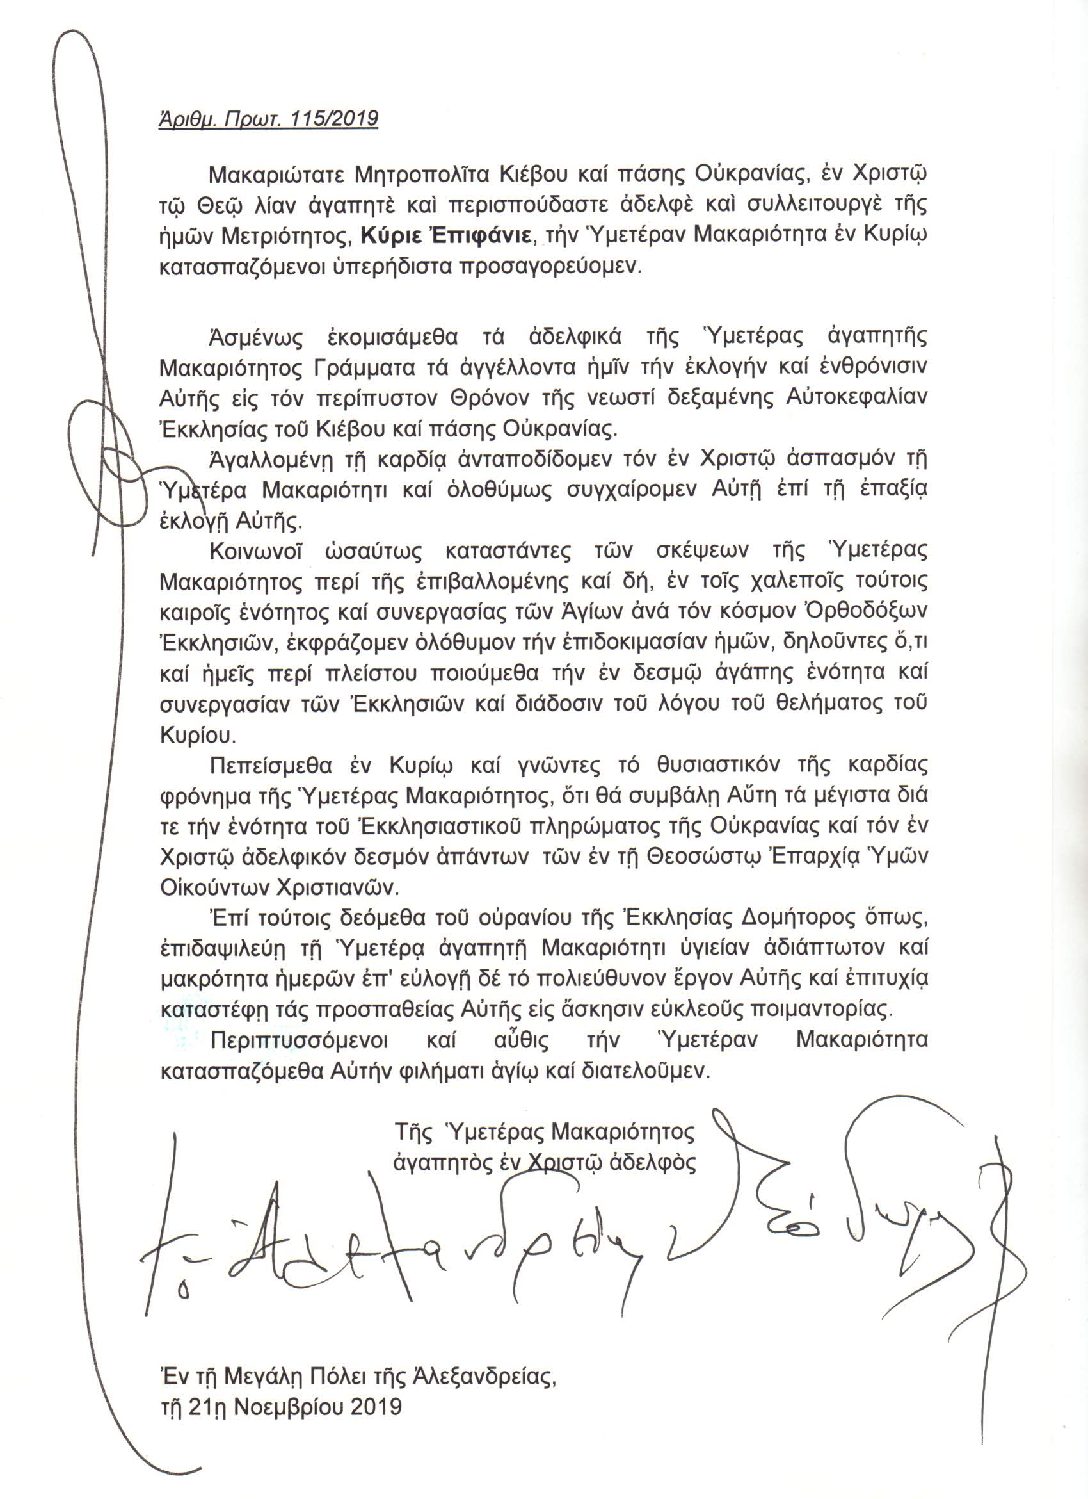 Ἀριθμ. Πρωτ. 115/2019
Μακαριώτατε Μητροπολῖτα Κιέβου καί πάσης Οὐκρανίας, ἐν Χριστῷ
τῷ Θεῷ λίαν ἀγαπητὲ καὶ περισπούδαστε ἀδελφὲ καὶ συλλειτουργὲ τῆς
ἡμῶν Μετριότητος, Κύριε Ἐπιφάνιε, τήν Ὑμετέραν Μακαριότητα ἐν Κυρίῳ
κατασπαζόμενοι ὑπερήδιστα προσαγορεύομεν.
Ἀσμένως ἐκομισάμεθα τά ἀδελφικά τῆς Ὑμετέρας ἀγαπητῆς
Μακαριότητος Γράμματα τά ἀγγέλλοντα ἡμῖν τήν ἐκλογήν καί ἐνθρόνισιν
Αὐτῆς εἰς τόν περίπυστον Θρόνον τῆς νεωστί δεξαμένης Αὐτοκεφαλίαν
Ἐκκλησίας τοῦ Κιέβου καί πάσης Οὐκρανίας.
Ἀγαλλομένῃ τῇ καρδίᾳ ἀνταποδίδομεν τόν ἐν Χριστῷ ἀσπασμόν τῇ
Ὑμετέρᾳ Μακαριότητι καί ὁλοθύμως συγχαίρομεν Αὐτῇ ἐπί τῇ ἐπαξίᾳ
ἐκλογῇ Αὐτῆς.
Κοινωνοῖ ὡσαύτως καταστάντες τῶν σκέψεων τῆς Ὑμετέρας
Μακαριότητος περί τῆς ἐπιβαλλομένης καί δή, ἐν τοῖς χαλεποῖς τούτοις
καιροῖς ἑνότητος καί συνεργασίας τῶν Ἁγίων ἀνά τόν κόσμον Ὀρθοδόξων
Ἐκκλησιῶν, ἐκφράζομεν ὁλόθυμον τήν ἐπιδοκιμασίαν ἡμῶν, δηλοῦντες ὅ,τι
καί ἡμεῖς περί πλείστου ποιούμεθα τήν ἐν δεσμῷ ἀγάπης ἑνότητα καί
συνεργασίαν τῶν Ἐκκλησιῶν καί διάδοσιν τοῦ λόγου τοῦ θελήματος τοῦ
Κυρίου.
Πεπείσμεθα ἐν Κυρίῳ καί γνῶντες τό θυσιαστικόν τῆς καρδίας
φρόνημα τῆς Ὑμετέρας Μακαριότητος, ὅτι θά συμβάλῃ Αὕτη τά μέγιστα διά
τε τήν ἑνότητα τοῦ Ἐκκλησιαστικοῦ πληρώματος τῆς Οὐκρανίας καί τόν ἐν
Χριστῷ ἀδελφικόν δεσμόν ἁπάντων τῶν ἐν τῇ Θεοσώστῳ Ἐπαρχίᾳ Ὑμῶν
Οἰκούντων Χριστιανῶν.
Ἐπί τούτοις δεόμεθα τοῦ οὐρανίου τῆς Ἐκκλησίας Δομήτορος ὅπως,
ἐπιδαψιλεύῃ τῇ Ὑμετέρᾳ ἀγαπητῇ Μακαριότητι ὑγιείαν ἀδιάπτωτον καί
μακρότητα ἡμερῶν ἐπ' εὐλογῇ δέ τό πολιεύθυνον ἔργον Αὐτῆς καί ἐπιτυχίᾳ
καταστέφῃ τάς προσπαθείας Αὐτῆς εἰς ἄσκησιν εὐκλεοῦς ποιμαντορίας.
Περιπτυσσόμενοι καί αὖθις τήν Ὑμετέραν Μακαριότητα
κατασπαζόμεθα Αὐτήν φιλήματι ἁγίῳ καί διατελοῦμεν.
Τῆς Ὑμετέρας Μακαριότητος
ἀγαπητὸς ἐν Χριστῷ ἀδελφὸς
Ἐν τῇ Μεγάλῃ Πόλει τῆς Ἀλεξανδρείας,
τῇ 21ῃ Νοεμβρίου 2019